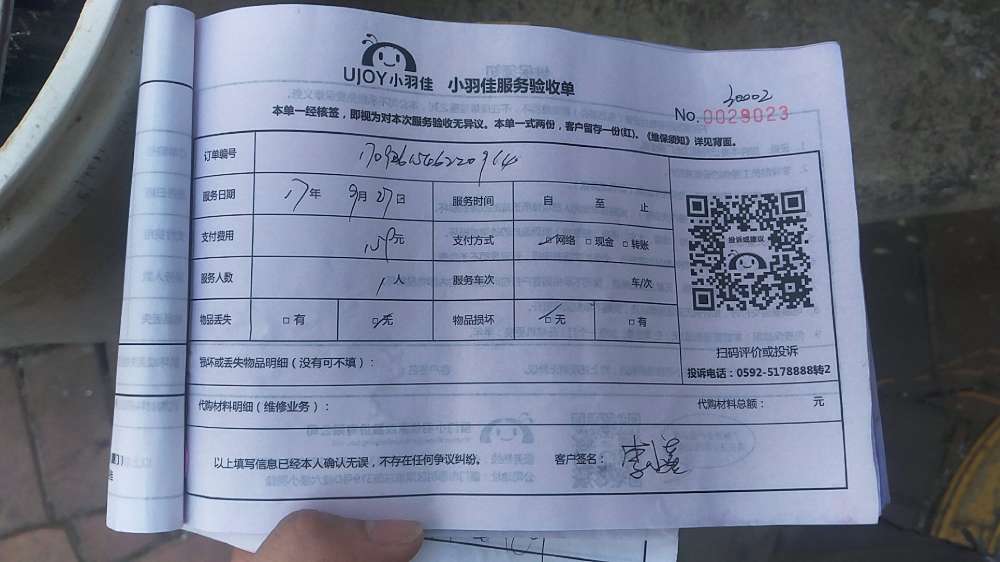 UJOY小羽佳 小羽佳服务验收单
30002
No.0029023
本单一经核签，即视为对本次服务验收无异议。本单一式两份，客户留存一份(红)。《维保须知》详见背面。
订单编号
服务日期 17年 9月27日 服务时间 自 至 止
支付费用 159元 支付方式 □网络 □现金 □转账
服务人数 1人 服务车次 车/次
物品丢失 □有 □无 物品损坏 □无 □有
投诉或建议
扫码评价或投诉
投诉电话：0592-5178888转2
损坏或丢失物品明细（没有可不填）：
代购材料明细（维修业务）： 代购材料总额： 元
以上填写信息已经本人确认无误，不存在任何争议纠纷。 客户签名：